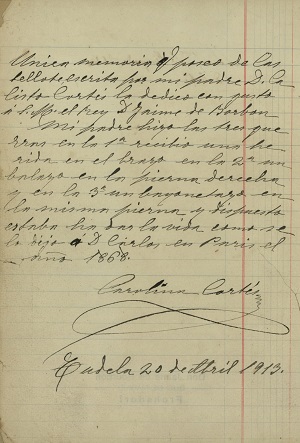 Unica memoria q poseo de Cas
tellote escrita por mi padre D. Ca
listo Cortés la dedico con gusto
a S. M. el Rey D. Jaime de Borbon
Mi padre hizo las tres gue
rras en la 1ª recibio una he
rida en el brazo en la 2ª un
balazo en la pierna derecha
y en la 3ª un bayonetazo en
la misma pierna y dispuesto
estaba ha dar la vida como se
lo dijo a D. Carlos en Paris el
año 1868.
Carolina Cortés
Tudela 20 de Abril 1913.